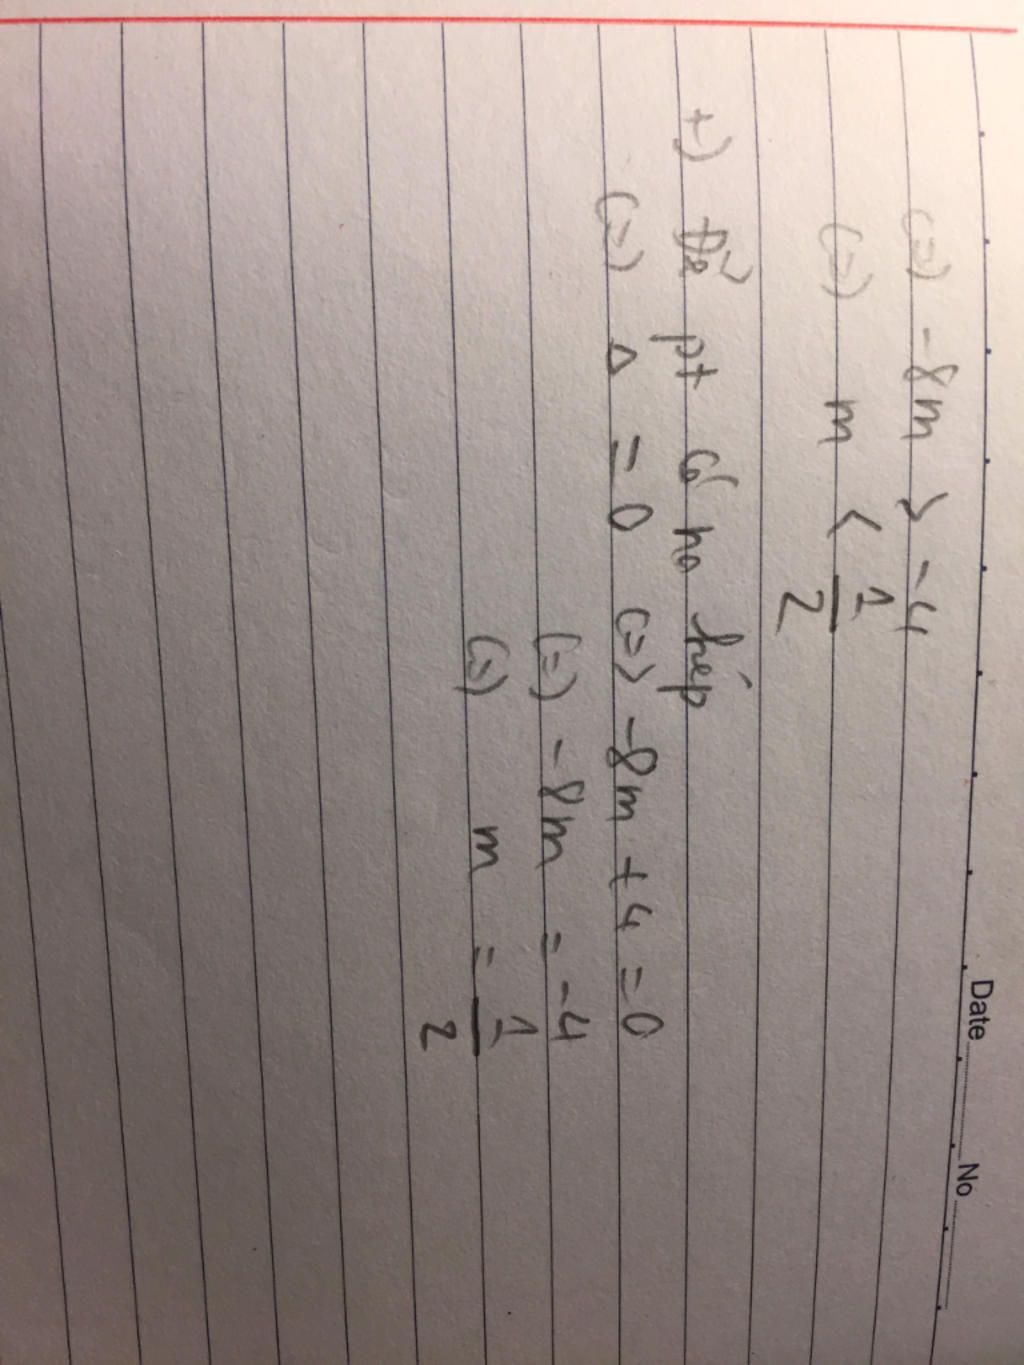 Date No
(=) -8m > -4
(=) m < 1/2
+) Để pt có no kép
(=) Δ = 0 (=) -8m + 4 = 0
(=) -8m = -4
(=) m = 1/2